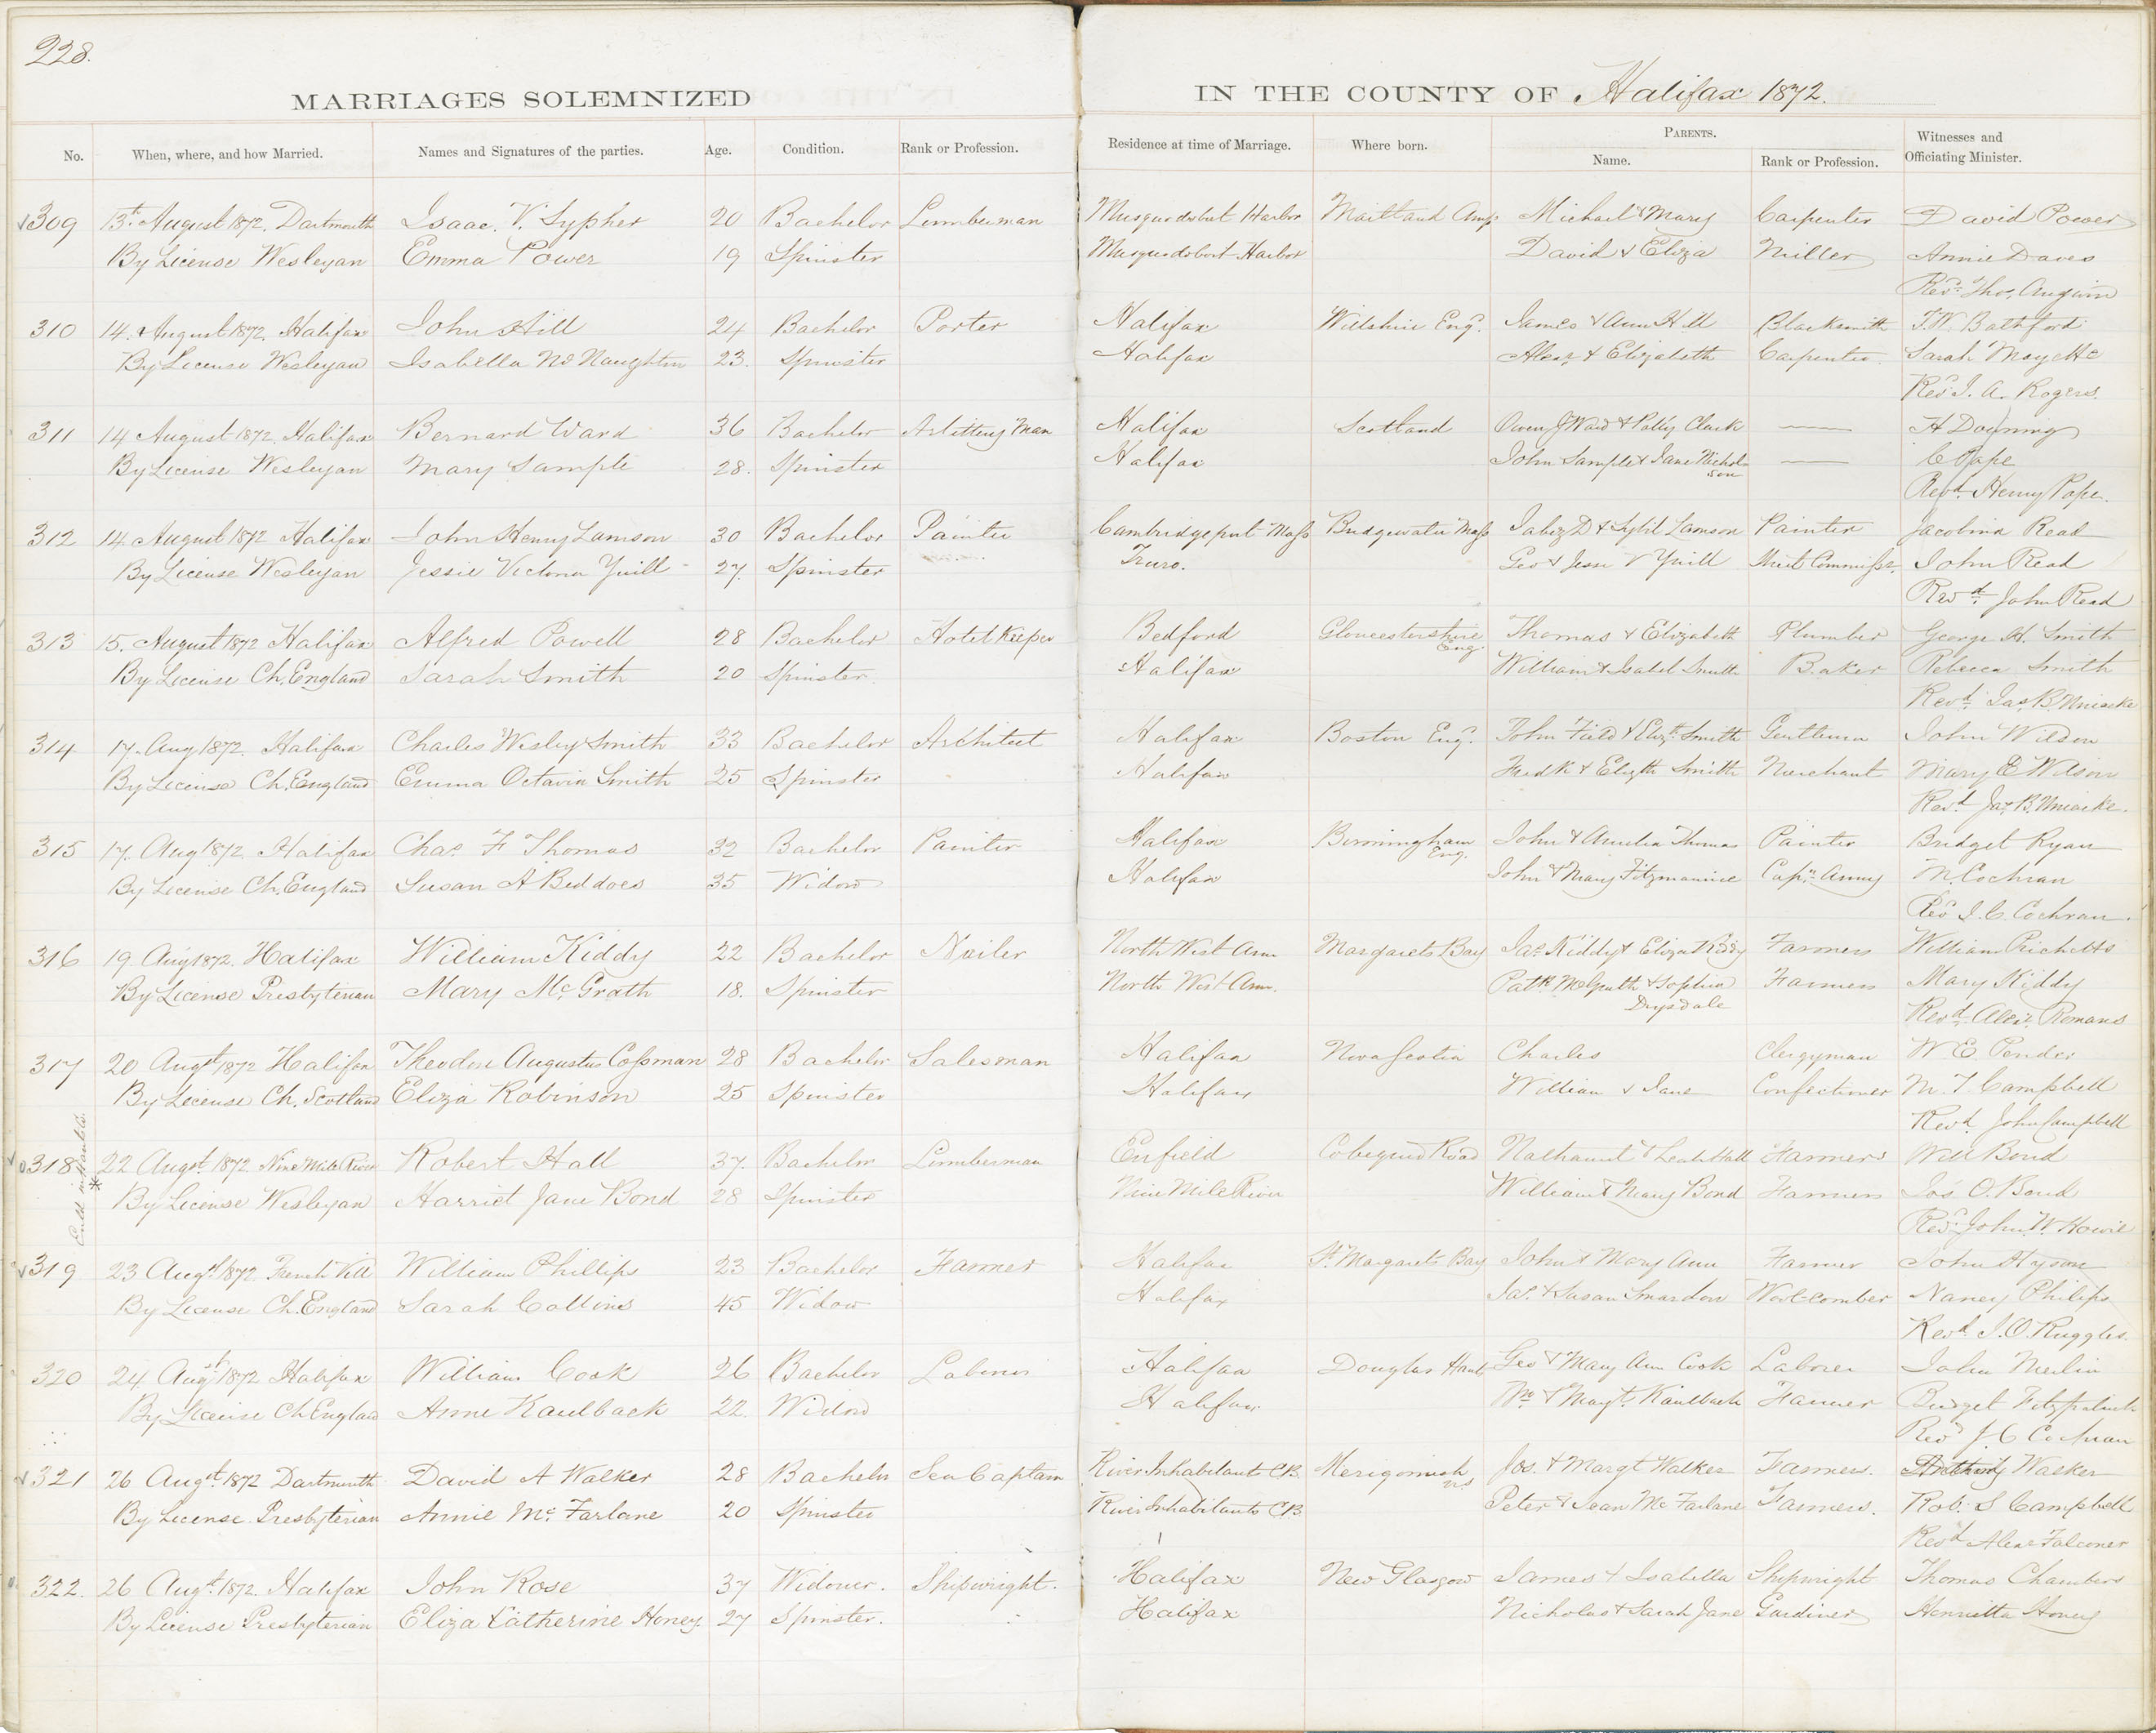 228.
MARRIAGES SOLEMNIZED
IN THE COUNTY OF Halifax 1872.
No. When, where, and how Married. Names and Signatures of the parties. Age. Condition. Rank or Profession. Residence at time of Marriage. Where born. PARENTS. Name. Rank or Profession. Witnesses and Officiating Minister.
309 13th August 1872 Dartmouth Isaac. V. Sypher 20 Bachelor Lumberman Musquodobut Harbor Maitland Anp. Michael & Mary Carpenter David Power
By License Wesleyan Emma Power 19 Spinster Musquodobut Harbor David & Eliza Miller Annie Daves
Revd. Thos. Angwin
310 14. August 1872. Halifax John Hill 24 Bachelor Porter Halifax Willshire Eng. James & Ann Hill Blacksmith T.W. Bathford
By License Wesleyan Isabella Mc Naughton 23. Spinster Halifax Alexr & Elizabeth Carpenter Sarah Mayette
Revd J. A. Rogers.
311 14 August 1872. Halifax Bernard Ward 36 Bachelor Artillery Man Halifax Scotland Owen J Ward & Polly Clark — H Downing
By License Wesleyan Mary Sample 28. Spinster Halifax John Sample & Jane Nicholson — C Pape
Revd. Henry Pope.
312 14 August 1872 Halifax John Henry Lamson 30 Bachelor Painter Cambridgeport Mass Bridgewater Mass Jabez D & Sybil Lamson Painter Jacobina Read
By License Wesleyan Jessie Victoria Yuill 27. Spinster Truro. Geo & Jessie V Yuill Street Commissr. John Read
Revd. John Read
313 15. August 1872 Halifax Alfred Powell 28 Bachelor Hotel Keeper Bedford Gloucestershire Eng. Thomas & Elizabeth Plumber George H. Smith
By License Ch. England Sarah Smith 20 Spinster. Halifax William & Isabel Smith Baker Rebecca Smith
Revd. Jas B Uniacke
314 17. Aug 1872. Halifax Charles Wesley Smith 33 Bachelor Architect Halifax Boston Eng. John Field & Elizth Smith Gentleman John Wilson
By License Ch. England Emma Octavia Smith 25 Spinster Halifax Fredk & Elizth Smith Merchant Mary E Wilson
Revd. Jas B. Uniacke.
315 17. Aug 1872. Halifax Chas. F Thomas 32 Bachelor Painter Halifax Birmingham Eng. John & Amelia Thomas Painter Bridget Ryan
By License Ch. England Susan A Beddoes 35 Widow Halifax John & Mary Fitzmaurice Capn. Army M. Cochran
Revd J. C. Cochran.
316 19. Aug 1872. Halifax William Kiddy 22 Bachelor Nailer North West Arm Margarets Bay Jas. Kiddy & Eliza Kiddy Farmers William Pricketts
By License Presbyterian Mary McGrath 18. Spinster North West Arm. Patk McGrath & Sophia Drysdale Farmers Mary Kiddy
Revd. Alexr. Romans
317 20 Augst 1872 Halifax Theodore Augustus Cossman 28 Bachelor Salesman Halifax Nova Scotia Charles Clergyman W E. Pender
By License Ch. Scotland Eliza Robinson 25 Spinster Halifax William & Jane Confectioner M. J. Campbell
Revd. John Campbell
318 22 Augst. 1872 Nine Mile River Robert Hall 37. Bachelor Lumberman Enfield Cobequid Road Nathaniel & Leah Hall Farmers Will Bond
By License Wesleyan Harriet Jane Bond 28 Spinster Nine Mile River William & Mary Bond Farmers Jos. O. Bond
Revd. John. W. Howie
319 23 Augst 1872. French Vill William Phillips 23 Bachelor Farmer Halifax St. Margarets Bay John & Mary Ann Farmer John Hyson
By License Ch. England Sarah Collins 45 Widow Halifax Jas. & Susan Smardon Wool-comber Nancy Philips
Revd. J. O. Ruggles.
320 24 Augst 1872 Halifax William Cook 26 Bachelor Laborer Halifax Douglas Hants Geo & Mary Ann Cook Laborer John Merlin
By License Ch England Anne Kaulback 22. Widow Halifax Wm & Margt. Kaulback Farmer Bridget Fitzpatrick
Revd J C Cochran
321 26 Augst. 1872 Dartmouth David A Walker 28 Bachelor Sea Captain River Inhabitants C.B. Merigomish N.S. Jos. & Margt Walker Farmers. Walker
By License Presbyterian Annie McFarlane 20 Spinster River Inhabitants C.B Peter & Jean McFarlane Farmers. Rob. S Campbell
Revd Alexr Falconer
322. 26 Augst 1872. Halifax John Rose 37 Widower. Shipwright. Halifax New Glasgow James & Isabella Shipwright Thomas Chambers
By License Presbyterian Eliza Catherine Honey 27 Spinster. Halifax Nicholas & Sarah Jane Gardiner Henrietta Honey